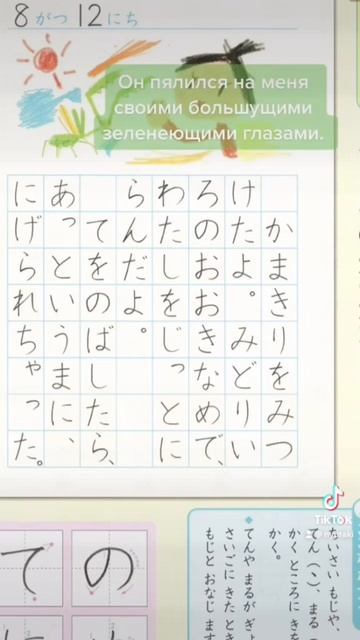 8がつ12にち
Он пялился на меня
своими большущими
зеленеющими глазами.
かまきりをみつ
けたよ。みどりい
ろのおおきなめで、
わたしをじっとに
らんだよ。
てをのばしたら、
あっというまに、
にげられちゃった。
TikTok
の
て
いさい もじや、
てん（、）、まる
かく ところに き
かく。
◆てんや まるが ぎ
さいごに きた と
もじと おなじ ま